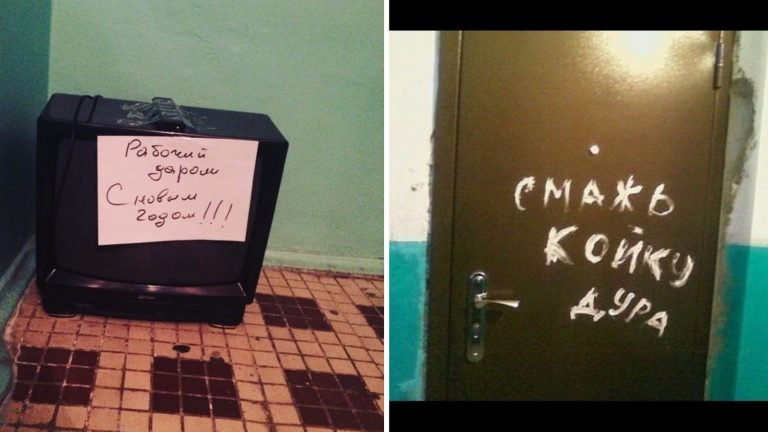 Рабочий
даром
С новым
годом!!!
СМАЖЬ
КОЙКУ
ДУРА